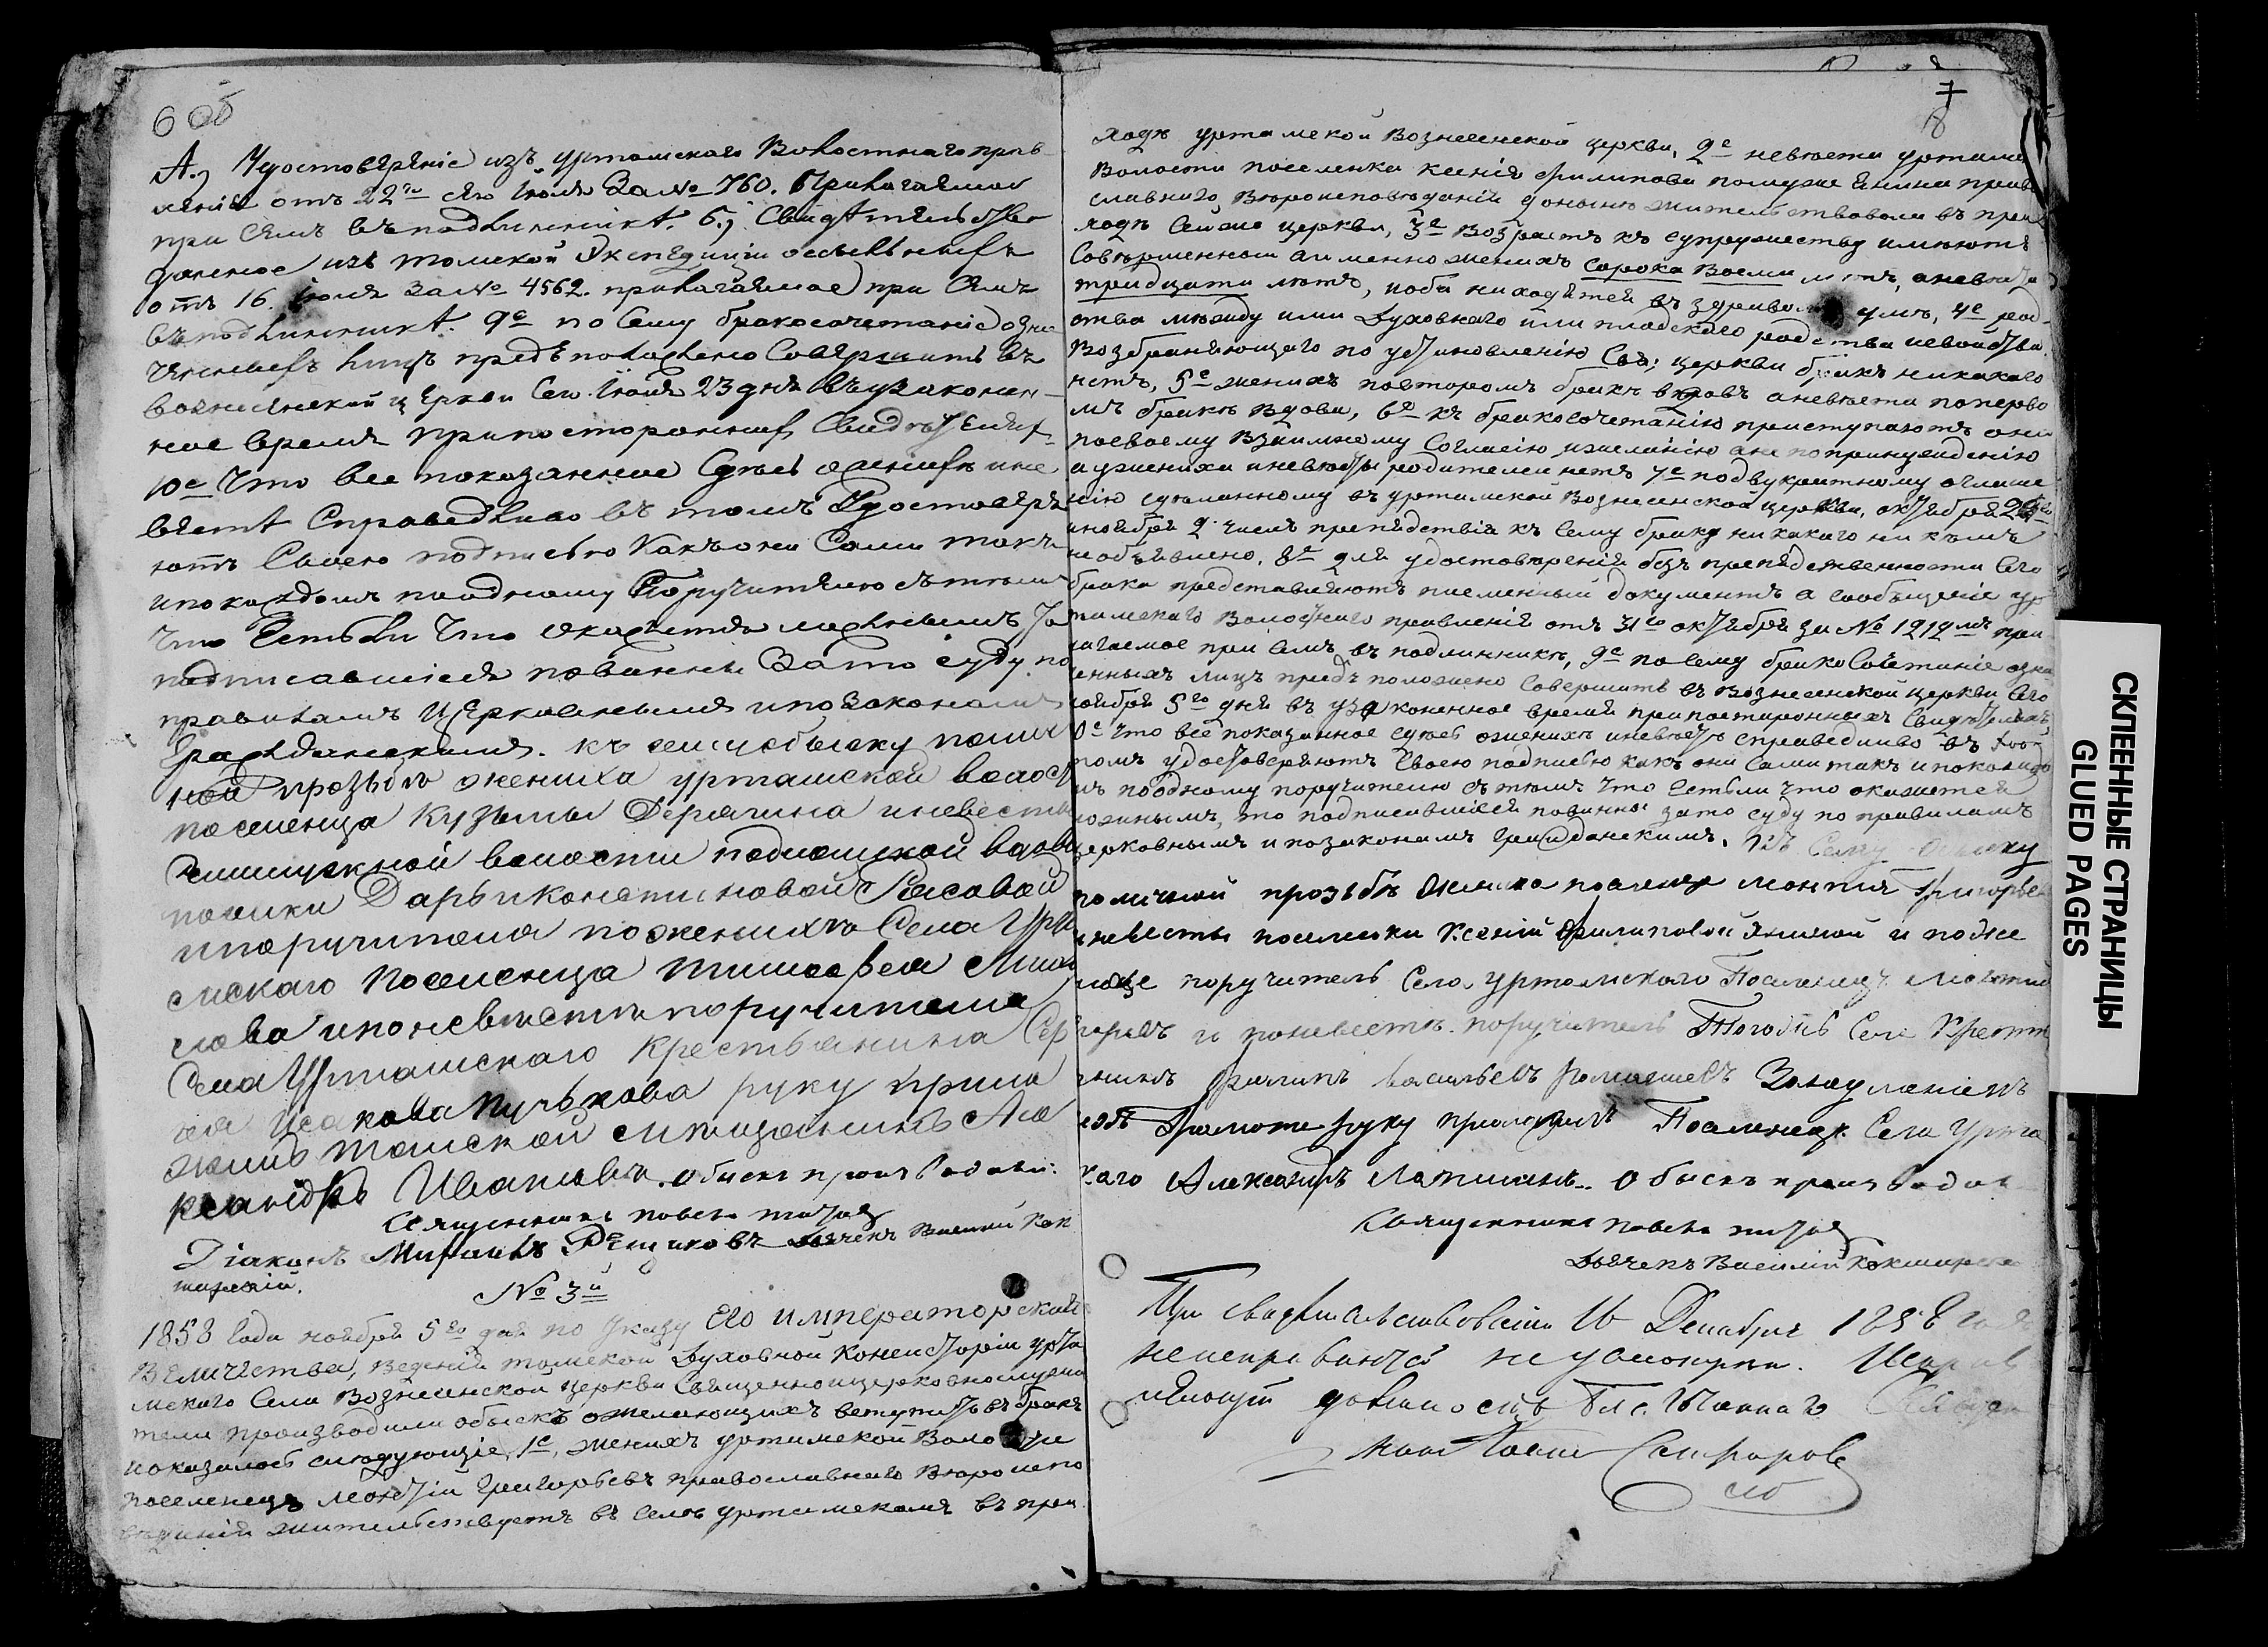 6 об
А., Удостоверѣніе изъ Уртамскаго Волостнаго прав-
ленія отъ 22го сего Іюля За № 760. Прилагаемое
при семъ въ подлинникѣ. Б.; Свидѣтельство
данное изъ Томской Экспедиціи о ссыльныхъ
отъ 16. Іюля За № 4562. прилагаемое при семъ
въ подлинникѣ. 9е по сему бракосочетаніе озна
ченныхъ лицъ предъположено совершить въ
вознесенской церкви сего Іюля 23 дня въ узаконен-
ное время при постороннихъ свидѣтеляхъ
10е Что все показанное здѣсь о женихѣ и не
вѣстѣ справедливо въ томъ удостоверя
ютъ своею подписью какъ они сами такъ
и по каждомъ по одному поручителю съ тѣмъ
что естьли что окажется ложнымъ то
подписавшіеся повинны за то суду по
правиламъ церковнымъ и по законамъ
гражданскимъ. къ сему обыску по лич
ной прозьбѣ жениха уртамской волос
поселенца Кузьмы Дерягина и невесты
волости
Дарьи Константиновой
и поручителя по женихѣ Села Урта
мскаго поселенца Тимофея Миха
лова и по невѣстѣ поручителя
Села Уртамскаго крестьянина Сер
руку прило
жилъ томской мещанинъ Але
ксандръ Ивановъ. Обыскъ производили:
Священникъ Павелъ
Діаконъ Дьячекъ Василій Кок
шарскій.
№ 3й
1858 Года ноября 5го дня по Указу Его императорскаго
Величества, Веденія томской Духовной Консисторіи урта
мскаго Села Вознесенской церкви Священно и церковнослужи
тели производили обыскъ о желающихъ вступить въ бракъ
и оказалось слѣдующіе, 1е, женихъ уртамской Волости
поселенецъ Григорьевъ православнаго Вѣроиспо
вѣданія жительствуетъ въ селѣ уртамскомъ въ при

7
8
ходѣ уртамской Вознесенской церкви, 2е невѣста уртамской
Волости поселенка Ксенія Филипова по мужѣ Янина право
славнаго Вѣроисповѣданія донынѣ жительствовала въ при
ходѣ Сей же церкви, 3е Возрастъ къ супружеству имѣютъ
Совершенной а именно женихъ сорока Восми лѣтъ, а невѣста
тридцати лѣтъ, и оба находятся въ здравомъ умѣ, 4е род-
ства между ими Духовнаго или плотскаго родства и свойства
Возбраняющаго по установленію Св: церкви бракъ никакого
нетъ, 5е женихъ по второмъ бракѣ вдовъ а невѣста по перво
мъ бракѣ вдова, 6е къ бракосочетанію приступаютъ они
по своему Взаимному Согласію и желанію а не по принужденію
а у жениха и невѣсты родителей нетъ 7е по двукратному оглаше
нію сдѣланному въ уртамской Вознесенской церкви, октября 26го
и ноября 2 числъ препядствія къ сему браку никакого ни кѣмъ
не объявлено. 8е для удостоверенія безъ препядственности сего
брака представляютъ писменный документъ а сообщеніе ур
тамскаго Волостнаго правленія отъ 31го октября за № 1212мъ при
лагаемое при семъ въ подлинникѣ, 9е по сему бракосочетаніе озна
ченныхъ лицъ предъположено совершить въ Вознесенской церкви сего
ноября 5го дня въ узаконенное время при постороннихъ свидѣтеляхъ,
10е что все показанное здѣсь о женихѣ и невѣстѣ справедливо въ
томъ удостоверяютъ своею подписью какъ они сами такъ и по каждо
мъ по одному поручителю съ тѣмъ что естьли что окажется
ложнымъ, то подписавшіеся повинны за то суду по правиламъ
церковнымъ и по законамъ гражданскимъ. Къ Сему обыску
по личной прозьбѣ жениха поселенца Григорьева
и невесты поселенки Ксеніи Филиповой Яниной и по же
нихе поручитель Села уртамскаго Поселенецъ
и по невестѣ поручитель Тогожъ Села Крестья
нинъ Филипъ Васильевъ
грамоте руку приложилъ Поселенецъ Села Урта
мскаго Александръ Обыскъ производи
Священникъ Павелъ
Дьячекъ Василій Кокшарскій
При свидѣтельствованіи 16 Декабря 1858 года
неисправностей не усмотрено. Исправ
ляющій должность Благочиннаго Священ
никъ